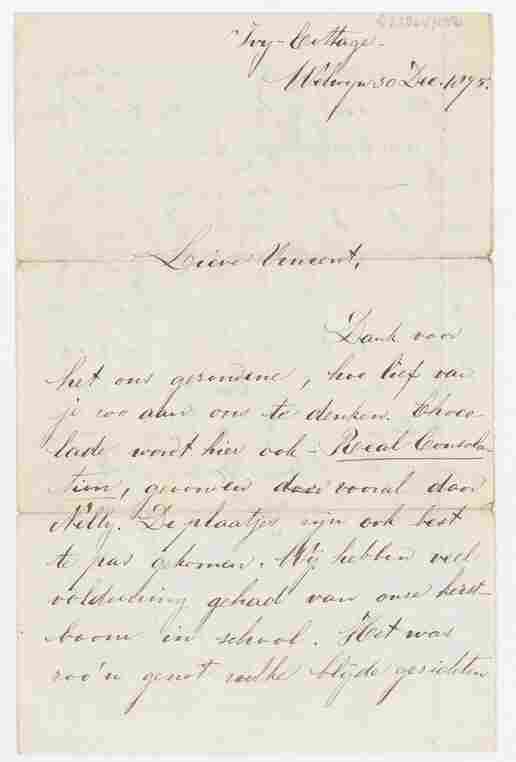 Ivy-Cottage.
Welwyn 30 Dec. 1875.
Lieve Vincent,
Dank voor
het ons gezondene, hoe lief van
je zoo aan ons te denken. Choco-
lade wordt hier ook - Real Consola-
tion, gevonden door vooral door
Nelly. De plaatjes zijn ook best
te pas gekomen. Wij hebben veel
voldoening gehad van onze kerst-
boom in school. Het was
zoo'n genot zulke blijde gezichten